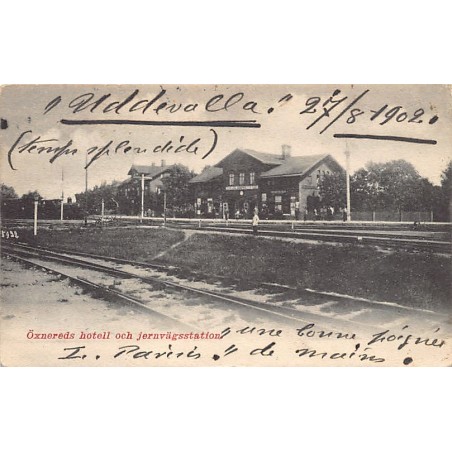 "Uddevalla". 27/8 1902.
(temps splendide)
Öxnereds hotell och jernvägsstation
"une bonne poignée
de mains."